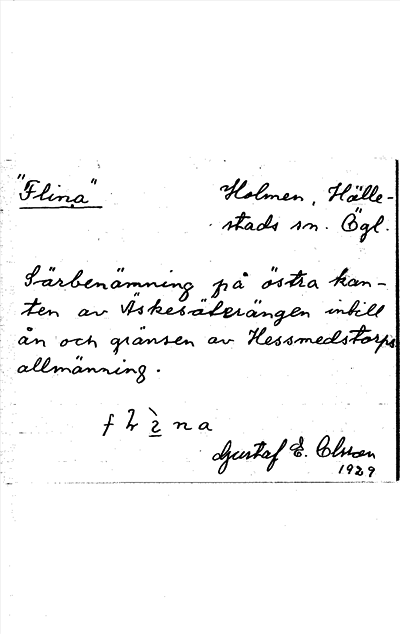 "Flina"
Holmen, Hälle-
stads sn. Ögl.
Särbenämning på östra kan-
ten av Äskesäterängen intill
ån och gränsen av Hessmedstorps
allmänning.
Gustaf E. Olsson
1929